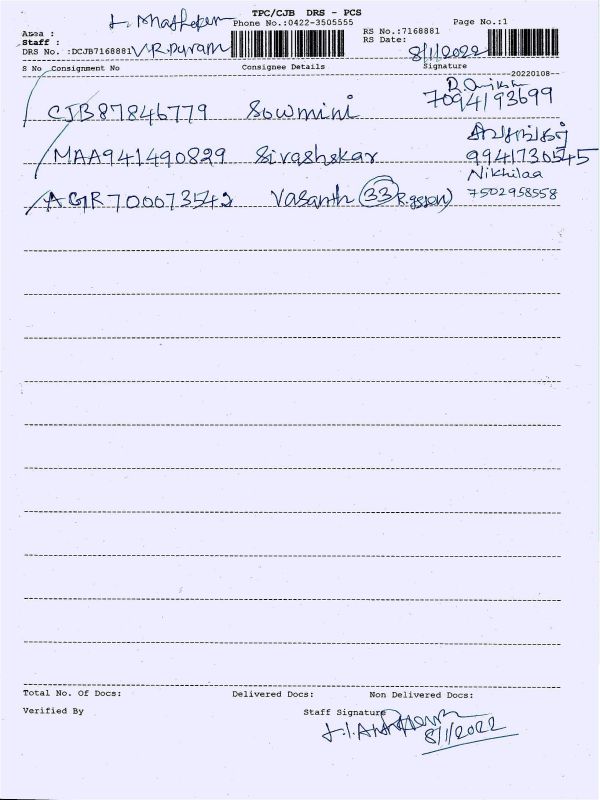 TPC/CJB DRS - PCS
Phone No.:0422-3505555 Page No.:1
Area :
Staff :
RS No.:7168881
DRS No. :DCJB7168881 V.R.Puram
RS Date: 8/1/2022
S No Consignment No Consignee Details Signature
20220108--
CJB87846779 Sowmini 7094193699
MAA941490829 Sivashskar 9941730545
Nikhilaa
AGR700073542 Vasanth (33 7502958558
Total No. Of Docs: Delivered Docs: Non Delivered Docs:
Verified By Staff Signature
8/1/2022